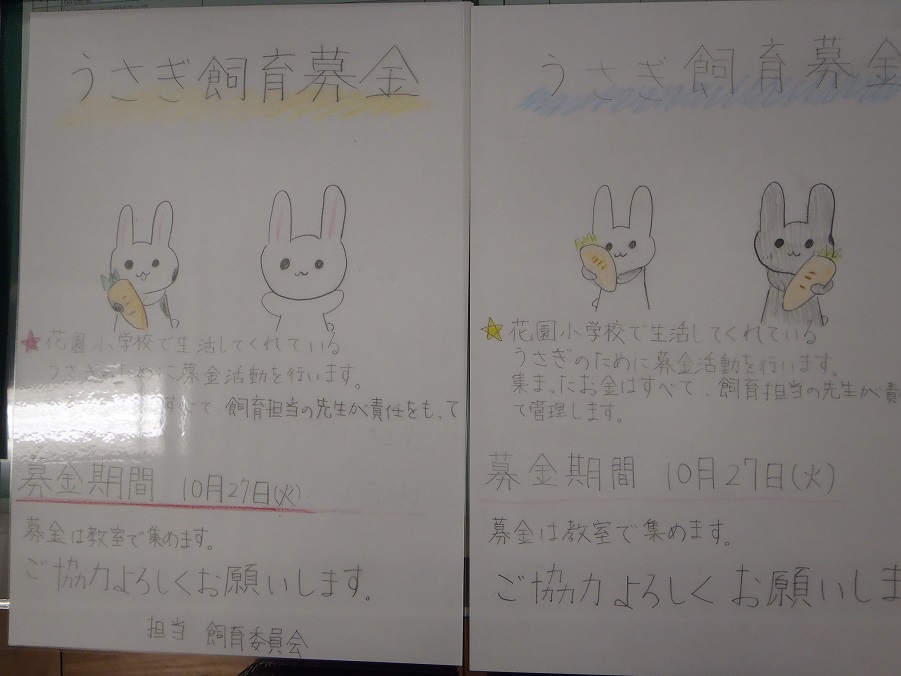 うさぎ飼育募金
★花園小学校で生活してくれている
うさぎのために募金活動を行います。
すべて 飼育担当の先生が責任をもって
募金期間 10月27日(火)
募金は教室で集めます。
ご協力よろしくお願いします。
担当 飼育委員会
うさぎ飼育募金
★花園小学校で生活してくれている
うさぎのために募金活動を行います。
集まったお金はすべて、飼育担当の先生が責
て管理します。
募金期間 10月27日(火)
募金は教室で集めます。
ご協力よろしくお願いしま